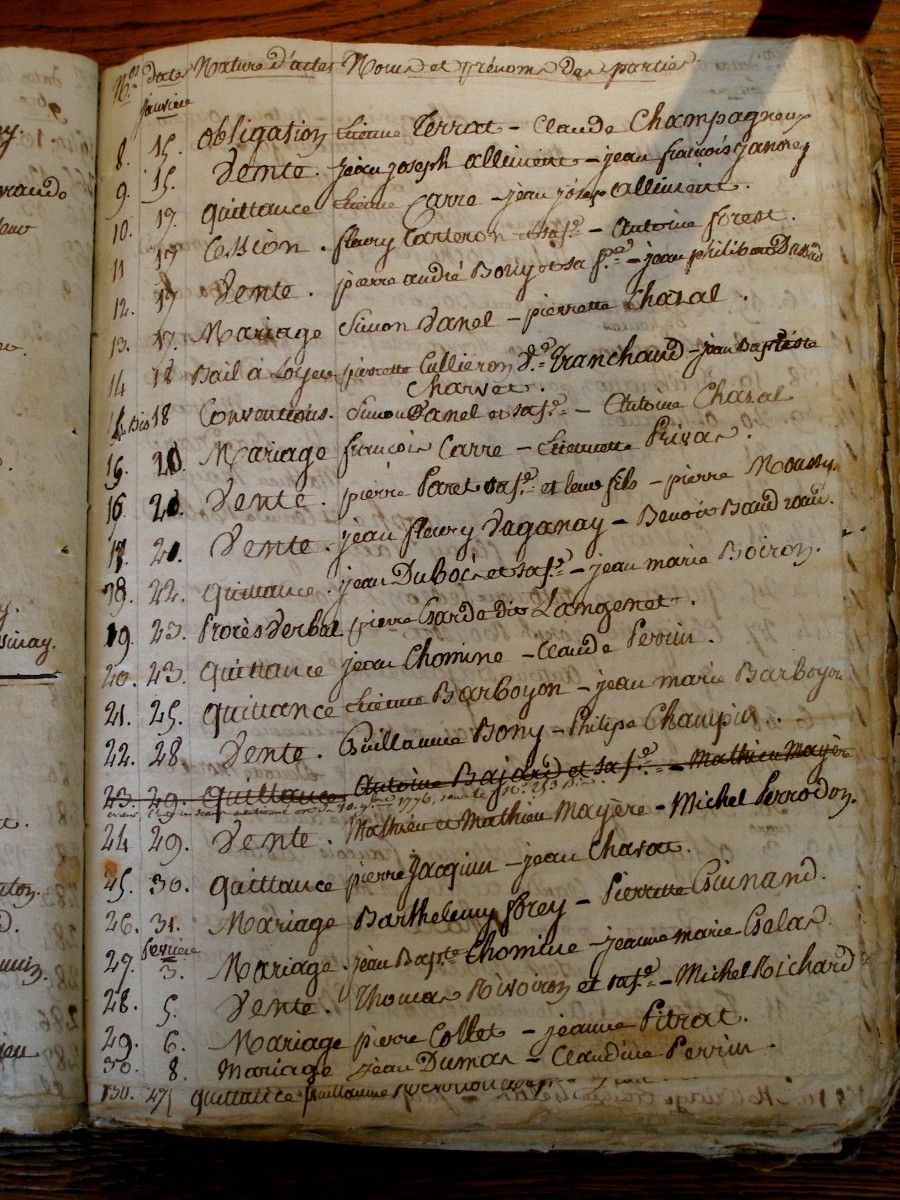 Nos dates Nature d'actes Noms et prénoms des parties
janvier
8. 15. Obligation Etienne Terrat - Claude Champagneux
9. 15. Vente. jean joseph alliment - jean françois janorey
10. 17. quittance Etienne Carre - jean joseph alliment.
11 17 Cession. fleury Carteron et sa fe. - Antoine forest.
12. 17 Vente. pierre andré Bony et sa fe. - jean philibert
13. 17. Mariage Simon Danel - pierrette Chazal.
14 18 Bail à Loyer pierrette Cullieron Ve. Tranchand - jean Baptiste
Charvet.
14 Bis 18 Conventions. Simon Danel et sa fe. - Antoine Chazal
15. 20. Mariage françois Carre - Etiennette Privas.
16 20. Vente. pierre Paret sa fe. et leur fils - pierre Moussy.
17. 20. Vente. jean fleury Daganay - Benoit Baudrand.
18. 22. quittance. jean Dubois et sa fe. - jean marie Boiron.
19. 23. Procès Verbal pierre Garde dit Langenet.
20. 23. quittance jean Chomine - Claude Perrin.
21. 25. quittance Etienne Barboyon - jean marie Barboyon
22. 28. Vente. Guillaume Bony - Philipe Champin.
23. 29. quittance Antoine Bajard et sa fe. - Mathieu Mayère
1776, sous le No. 253 Bis.
24 29. Vente. Mathieu et Mathieu Mayère - Michel Perrodon.
25. 30. quittance pierre Jacquin - jean Charat.
26. 31. Mariage Barthelemy forey - Pierrette Guinand.
fevrier
27. 3. Mariage. jean Bapste. Chomine - jeanne marie Gelas.
28. 5. Vente. Thomas Rivoiron et sa fe. - Michel Richard
29. 6. Mariage pierre Collet - jeanne Pitrat.
30. 8. Mariage jean Dumas - Claudine Perrin.
130. 27 quittance guillaume